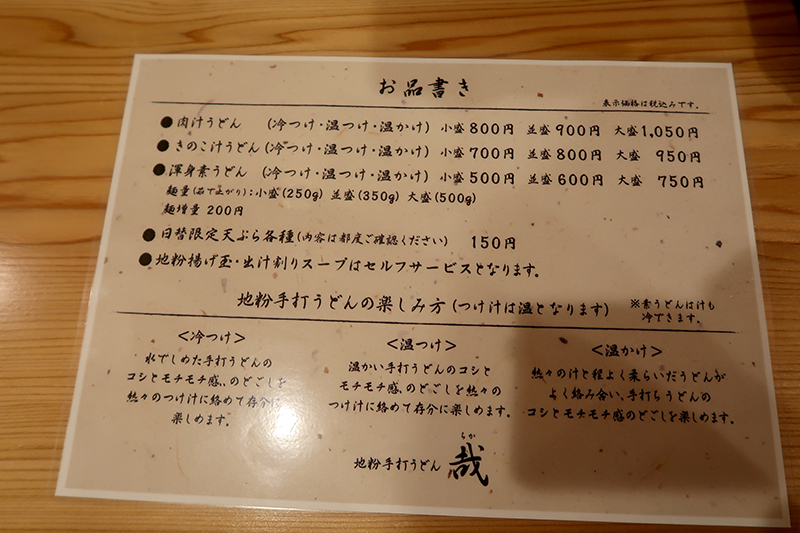 お品書き
表示価格は税込みです。
●肉汁うどん (冷つけ・温つけ・温かけ) 小盛800円 並盛900円 大盛1,050円
●きのこ汁うどん(冷つけ・温つけ・温かけ) 小盛700円 並盛800円 大盛950円
●渾身素うどん (冷つけ・温つけ・温かけ) 小盛500円 並盛600円 大盛750円
麺量(茹で上がり):小盛(250g) 並盛(350g) 大盛(500g)
麺増量 200円
●日替限定天ぷら各種(内容は都度ご確認ください) 150円
●地粉揚げ玉・出汁割りスープはセルフサービスとなります。
地粉手打うどんの楽しみ方(つけ汁は温となります)
※素うどんは汁も
冷できます。
<冷つけ>
水でしめた手打うどんの
コシとモチモチ感、のどごしを
熱々のつけ汁に絡めて存分に
楽しめます。
<温つけ>
温かい手打うどんのコシと
モチモチ感、のどごしを熱々の
つけ汁に絡めて存分に楽しめます。
<温かけ>
熱々の汁と程よく柔らいだうどんが
よく絡み合い、手打ちうどんの
コシとモチモチ感のどごしを楽しめます。
地粉手打うどん 哉
ちか